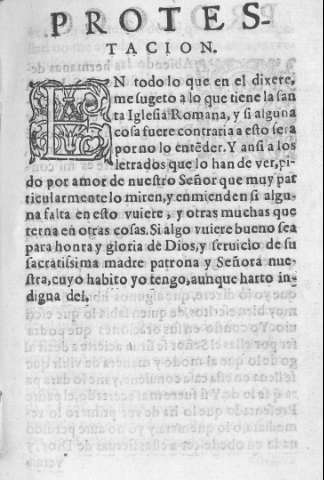 PROTES-
TACION.
EN todo lo que en el dixere,
me sugeto a lo que tiene la san
ta Iglesia Romana, y si alguna
cosa fuere contraria a esto sera
por no lo entẽder. Y ansi a los
letrados que lo han de ver, pi
do por amor de nuestro Señor que muy par
ticularmente lo miren, y enmienden si algu
na falta en esto vuiere, y otras muchas que
terna en otras cosas. Si algo vuiere bueno sea
para honra y gloria de Dios, y seruicio de su
sacratissima madre patrona y Señora nue-
stra, cuyo habito yo tengo, aunque harto in-
digna del,